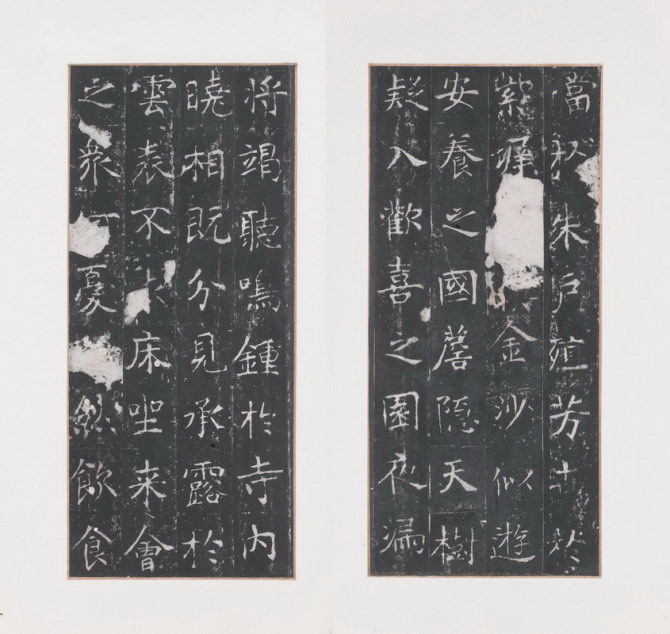 當朱戶殖芳卉於
紫墀金沙似遊
安養之國簷隱天樹
疑入歡喜之園夜漏
將竭聽鳴鍾於寺內
曉相既分見承露於
雲表不床坐来會
之衆憂然飲食